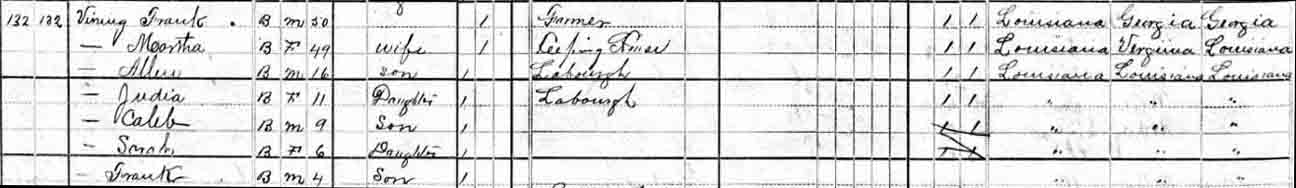 132 132 Vining Frank . B M 50 1 Farmer 1 1 Louisiana Georgia Georgia
— Martha B F 49 Wife 1 Keeping House 1 1 Louisiana Virginia Louisiana
— Allen B M 16 Son 1 Labourgh 1 1 Louisiana Louisiana Louisiana
— Judia B F 11 Daughter 1 Labourgh 1 1 " " "
— Caleb B M 9 Son 1 1 1 " " "
— Sarah B F 6 Daughter 1 1 1 " " "
— Frank B M 4 Son 1 " " "